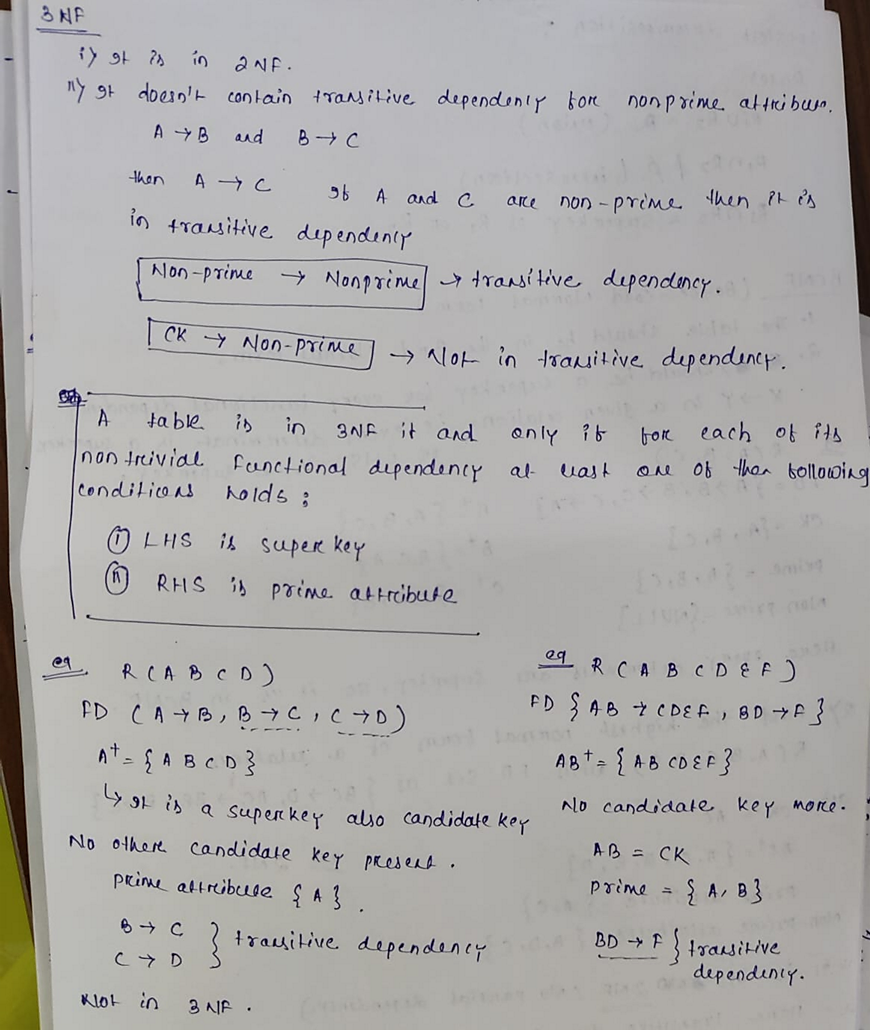 3NF
i) It is in 2NF.
ii) It doesn't contain transitive dependency for nonprime attribute.
A → B and B → C
then A → C If A and C are non-prime then it is
in transitive dependency
Non-prime → Nonprime → transitive dependency.
CK → Non-prime → Not in transitive dependency.
A table is in 3NF if and only if for each of its
nontrivial functional dependency at least one of then following
conditions holds:
(i) LHS is super key
(ii) RHS is prime attribute
eg R(A B C D)
FD (A → B, B → C, C → D)
A+ = {A B C D}
↳ It is a superkey also candidate key
No other candidate key present.
Prime attribute {A}.
B → C
C → D } transitive dependency
Not in 3NF.
eg R(A B C D E F)
FD {AB → CDEF, BD → F}
AB+ = {AB CDEF}
No candidate key more.
AB = CK
Prime = {A, B}
BD → F } transitive
dependency.